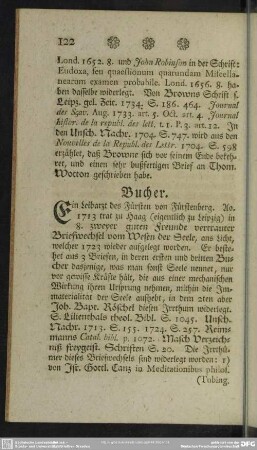 122
Lond. 1652. 8. und John Robinson in der Schrift:
Eudoxa, seu quaestionum quarundam Miscella-
nearum examen probabile. Lond. 1656. 8. ha-
ben dasselbe widerlegt. Von Browns Schrift s.
Leipz. gel. Zeit. 1734. S. 186. 464. Journal
des Sçav. Aug. 1733. art. 5. Oct. art. 4. Journal
histor. de la republ. des lett. t. 1. P. 3. art. 22. In
den Unsch. Nachr. 1704. S. 747. wird aus den
Nouvelles de la Republ. des Lettr. 1704. S. 598
erzählet, daß Browne sich vor seinem Ende bekeh-
ret, und einen sehr bußfertigen Brief an Thom.
Wotton geschrieben habe.
Bucher.
Ein Leibarzt des Fürsten von Fürstenberg. Ao.
1713 trat zu Haag (eigentlich zu Leipzig) in
8. zweyer guten Freunde vertrauter
Briefwechsel vom Wesen der Seele, ans Licht,
welcher 1723 wieder aufgelegt worden. Er beste-
het aus 3 Briefen, in deren ersten und dritten Bu-
cher dasjenige, was man sonst Seele nennet, nur
vor gewisse Kräfte hält, die aus einer mechanischen
Wirkung ihren Ursprung nehmen, mithin die Im-
materialität der Seele aufhebt, in dem 2ten aber
Joh. Bapt. Röschel diesen Irrthum widerlegt.
S. Lilienthals theol. Bibl. S. 1045. Unsch.
Nachr. 1713. S. 155. 1724. S. 257. Reim-
manns Catal. bibl. p. 1072. Masch Verzeich-
niß freygeist. Schriften S. 20. Die Irrthü-
mer dieses Briefwechsels sind widerlegt worden: 1)
von Isr. Gottl. Canz in Meditationibus philos.
(Tubing.